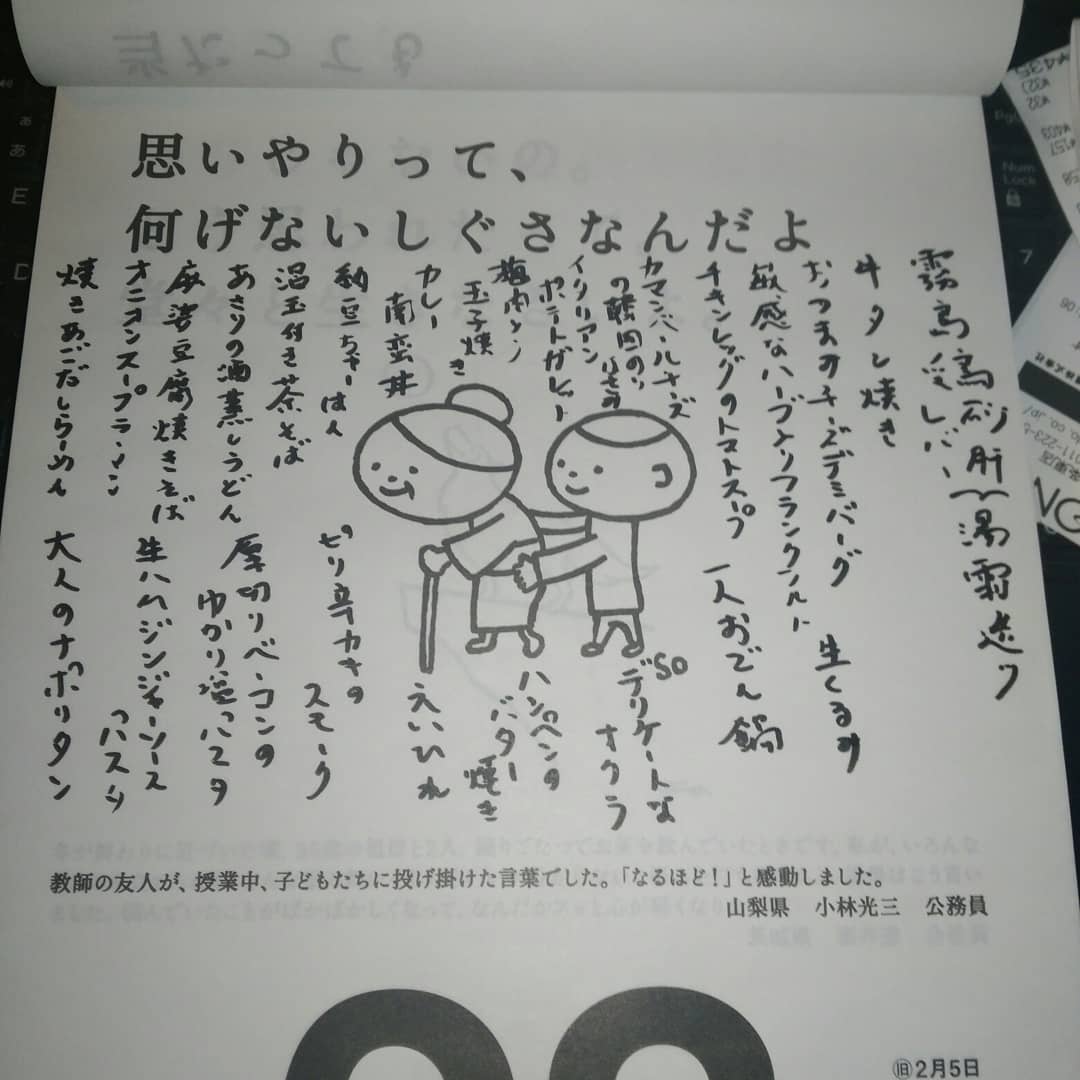 思いやりって、
何げないしぐさなんだよ
牛タレ焼き
おつまみチーズデミバーグ
生くるみ
敏感なハーブ
チキンレッグのトマトスープ
一人おでん鍋
カマンベールチーズ
の韓国のり
SO
デリケートな
オクラ
イタリアン
ポテトガレット
ハンペンの
バター焼き
梅肉
玉子焼き
カレー
南蛮丼
えいひれ
納豆ちゃーはん
ピリ辛カキの
スモーク
温玉付き茶そば
あさりの酒蒸しうどん
厚切りベーコンの
ゆかり塩パスタ
麻婆豆腐焼きそば
オニオンスープラーメン
生ハムジンジャーソース
パスタ
焼きあごだしらーめん
大人のナポリタン
教師の友人が、授業中、子どもたちに投げ掛けた言葉でした。「なるほど!」と感動しました。
山梨県 小林光三 公務員
旧2月5日